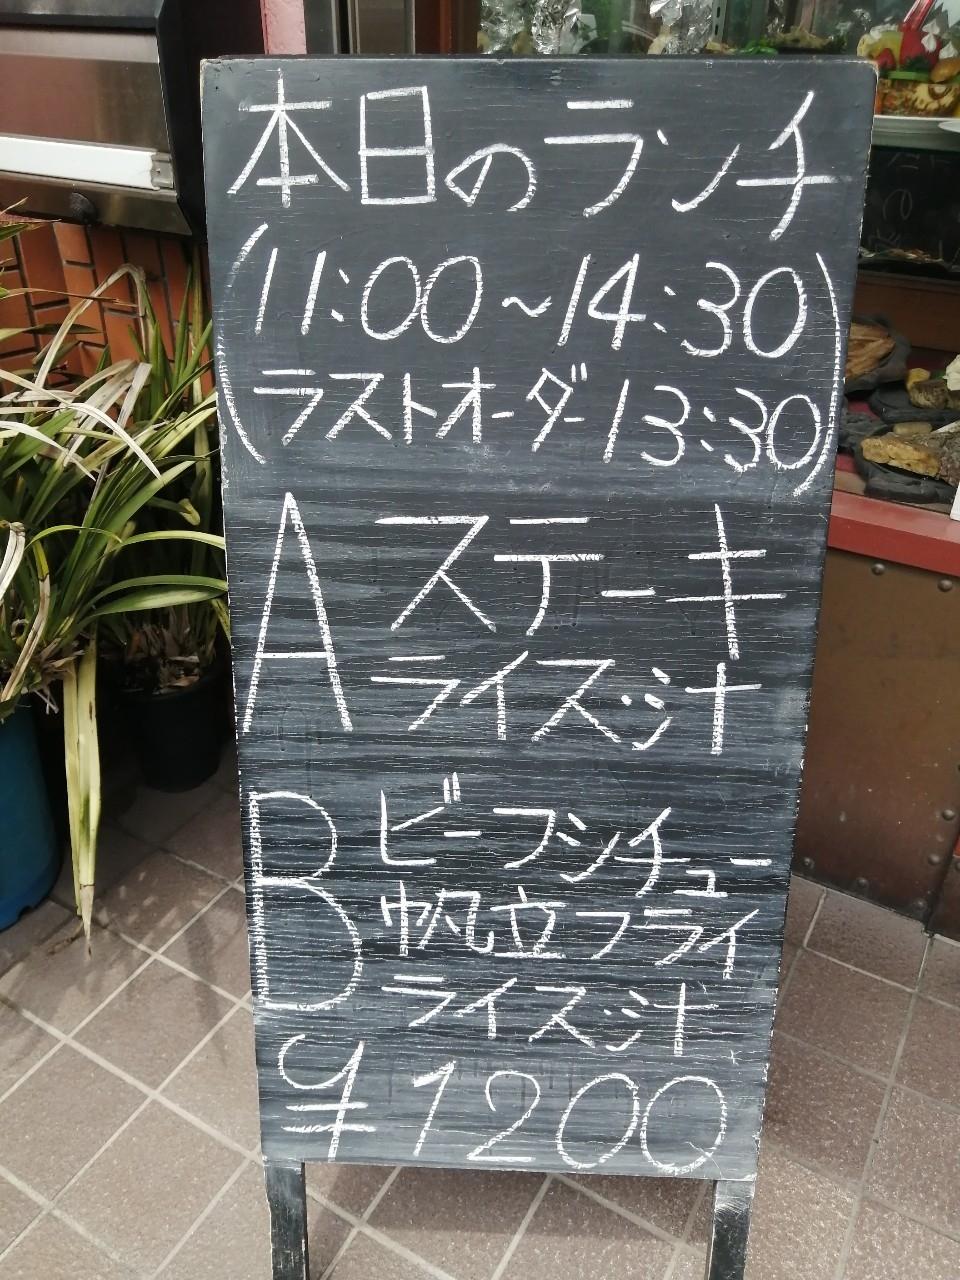 本日のランチ
(11:00~14:30)
(ラストオーダー13:30)
A ステーキ
ライス汁
B ビーフシチュー
帆立フライ
ライス汁
¥1200